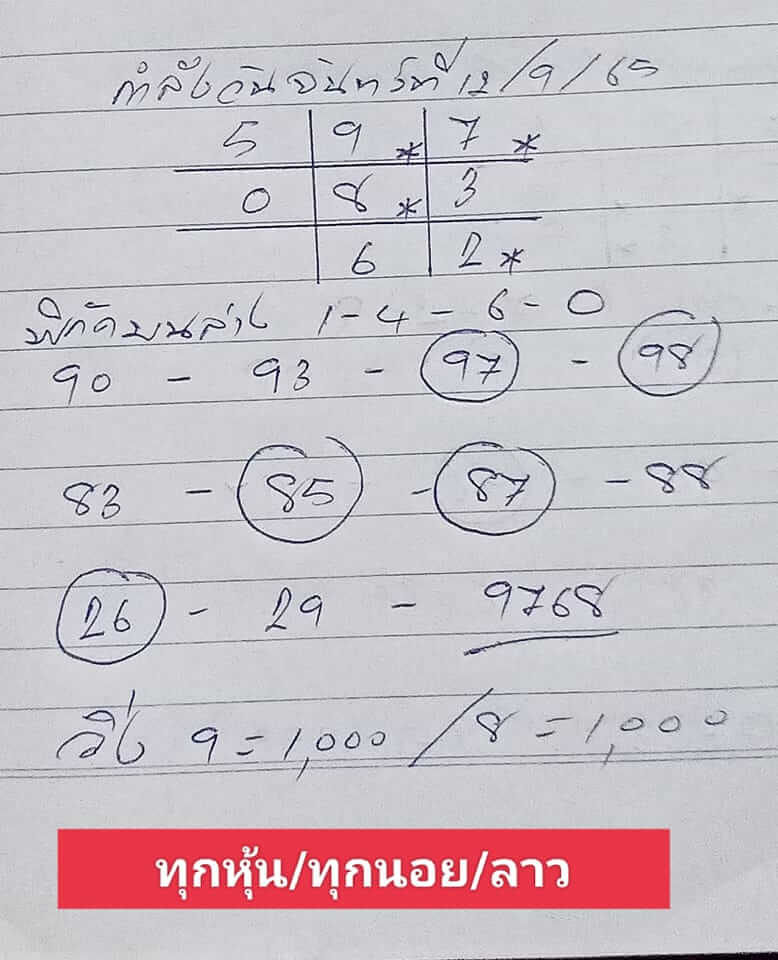 กำลังวันจันทร์ที่ 12/9/65
5 9* 7*
0 8* 3
6 2*
พิกัดบนล่าง 1-4-6-0
90 - 93 - 97 - 98
83 - 85 - 87 - 88
26 - 29 - 9768
วิ่ง 9=1,000 / 8=1,000
ทุกหุ้น/ทุกนอย/ลาว